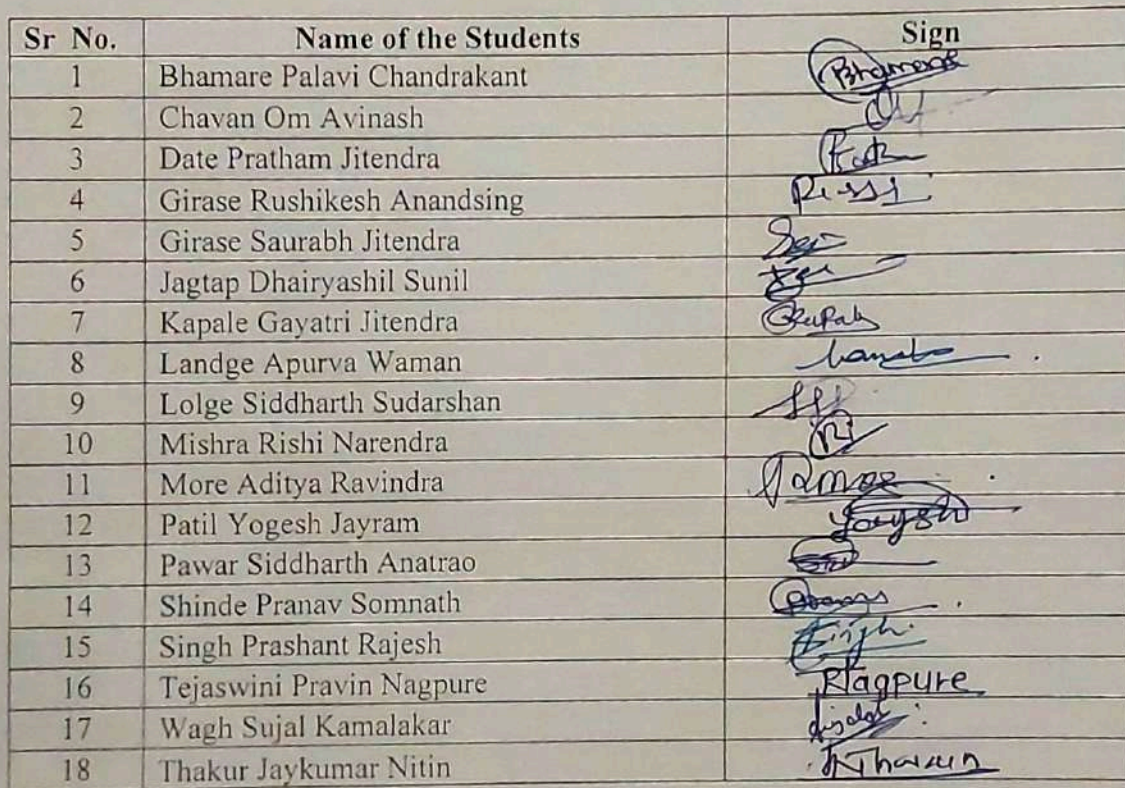 Sr No. Name of the Students Sign
1 Bhamare Palavi Chandrakant Bhamare
2 Chavan Om Avinash
3 Date Pratham Jitendra
4 Girase Rushikesh Anandsing
5 Girase Saurabh Jitendra
6 Jagtap Dhairyashil Sunil
7 Kapale Gayatri Jitendra
8 Landge Apurva Waman
9 Lolge Siddharth Sudarshan
10 Mishra Rishi Narendra
11 More Aditya Ravindra
12 Patil Yogesh Jayram
13 Pawar Siddharth Anatrao
14 Shinde Pranav Somnath
15 Singh Prashant Rajesh Singh
16 Tejaswini Pravin Nagpure Nagpure
17 Wagh Sujal Kamalakar
18 Thakur Jaykumar Nitin